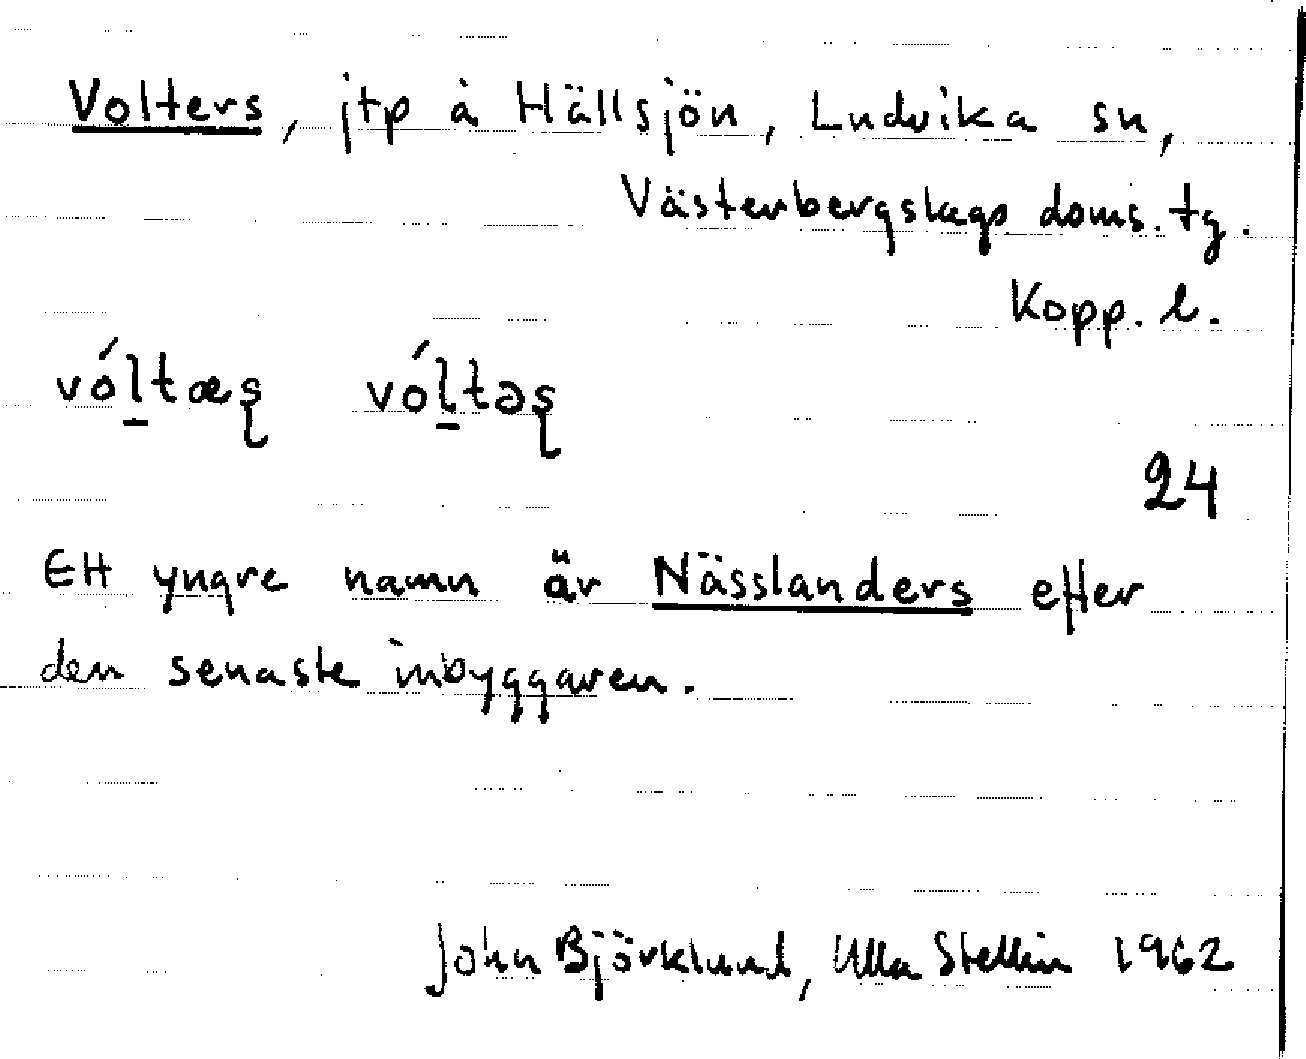 Volters, jtp å Hällsjön, Ludvika sn,
Västerbergslags doms. tg.
Kopp. l.
vól̠tæʂ vól̠təʂ
24
Ett yngre namn är Nässlanders efter
den senaste inbyggaren.
John Björklund, Ulla Stellin 1962